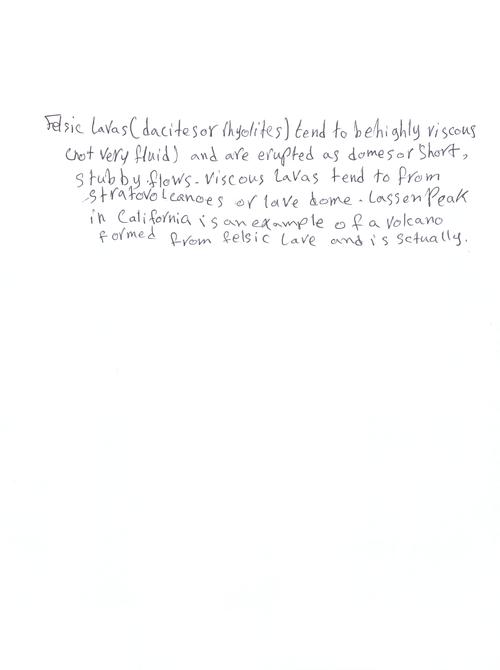 Felsic lavas (dacites or rhyolites) tend to be highly viscous
(not very fluid) and are erupted as domes or short,
stubby flows. viscous lavas tend to from
stratovolcanoes or lave dome. Lassen Peak
in California is an example of a volcano
formed from felsic lave and is sctually.